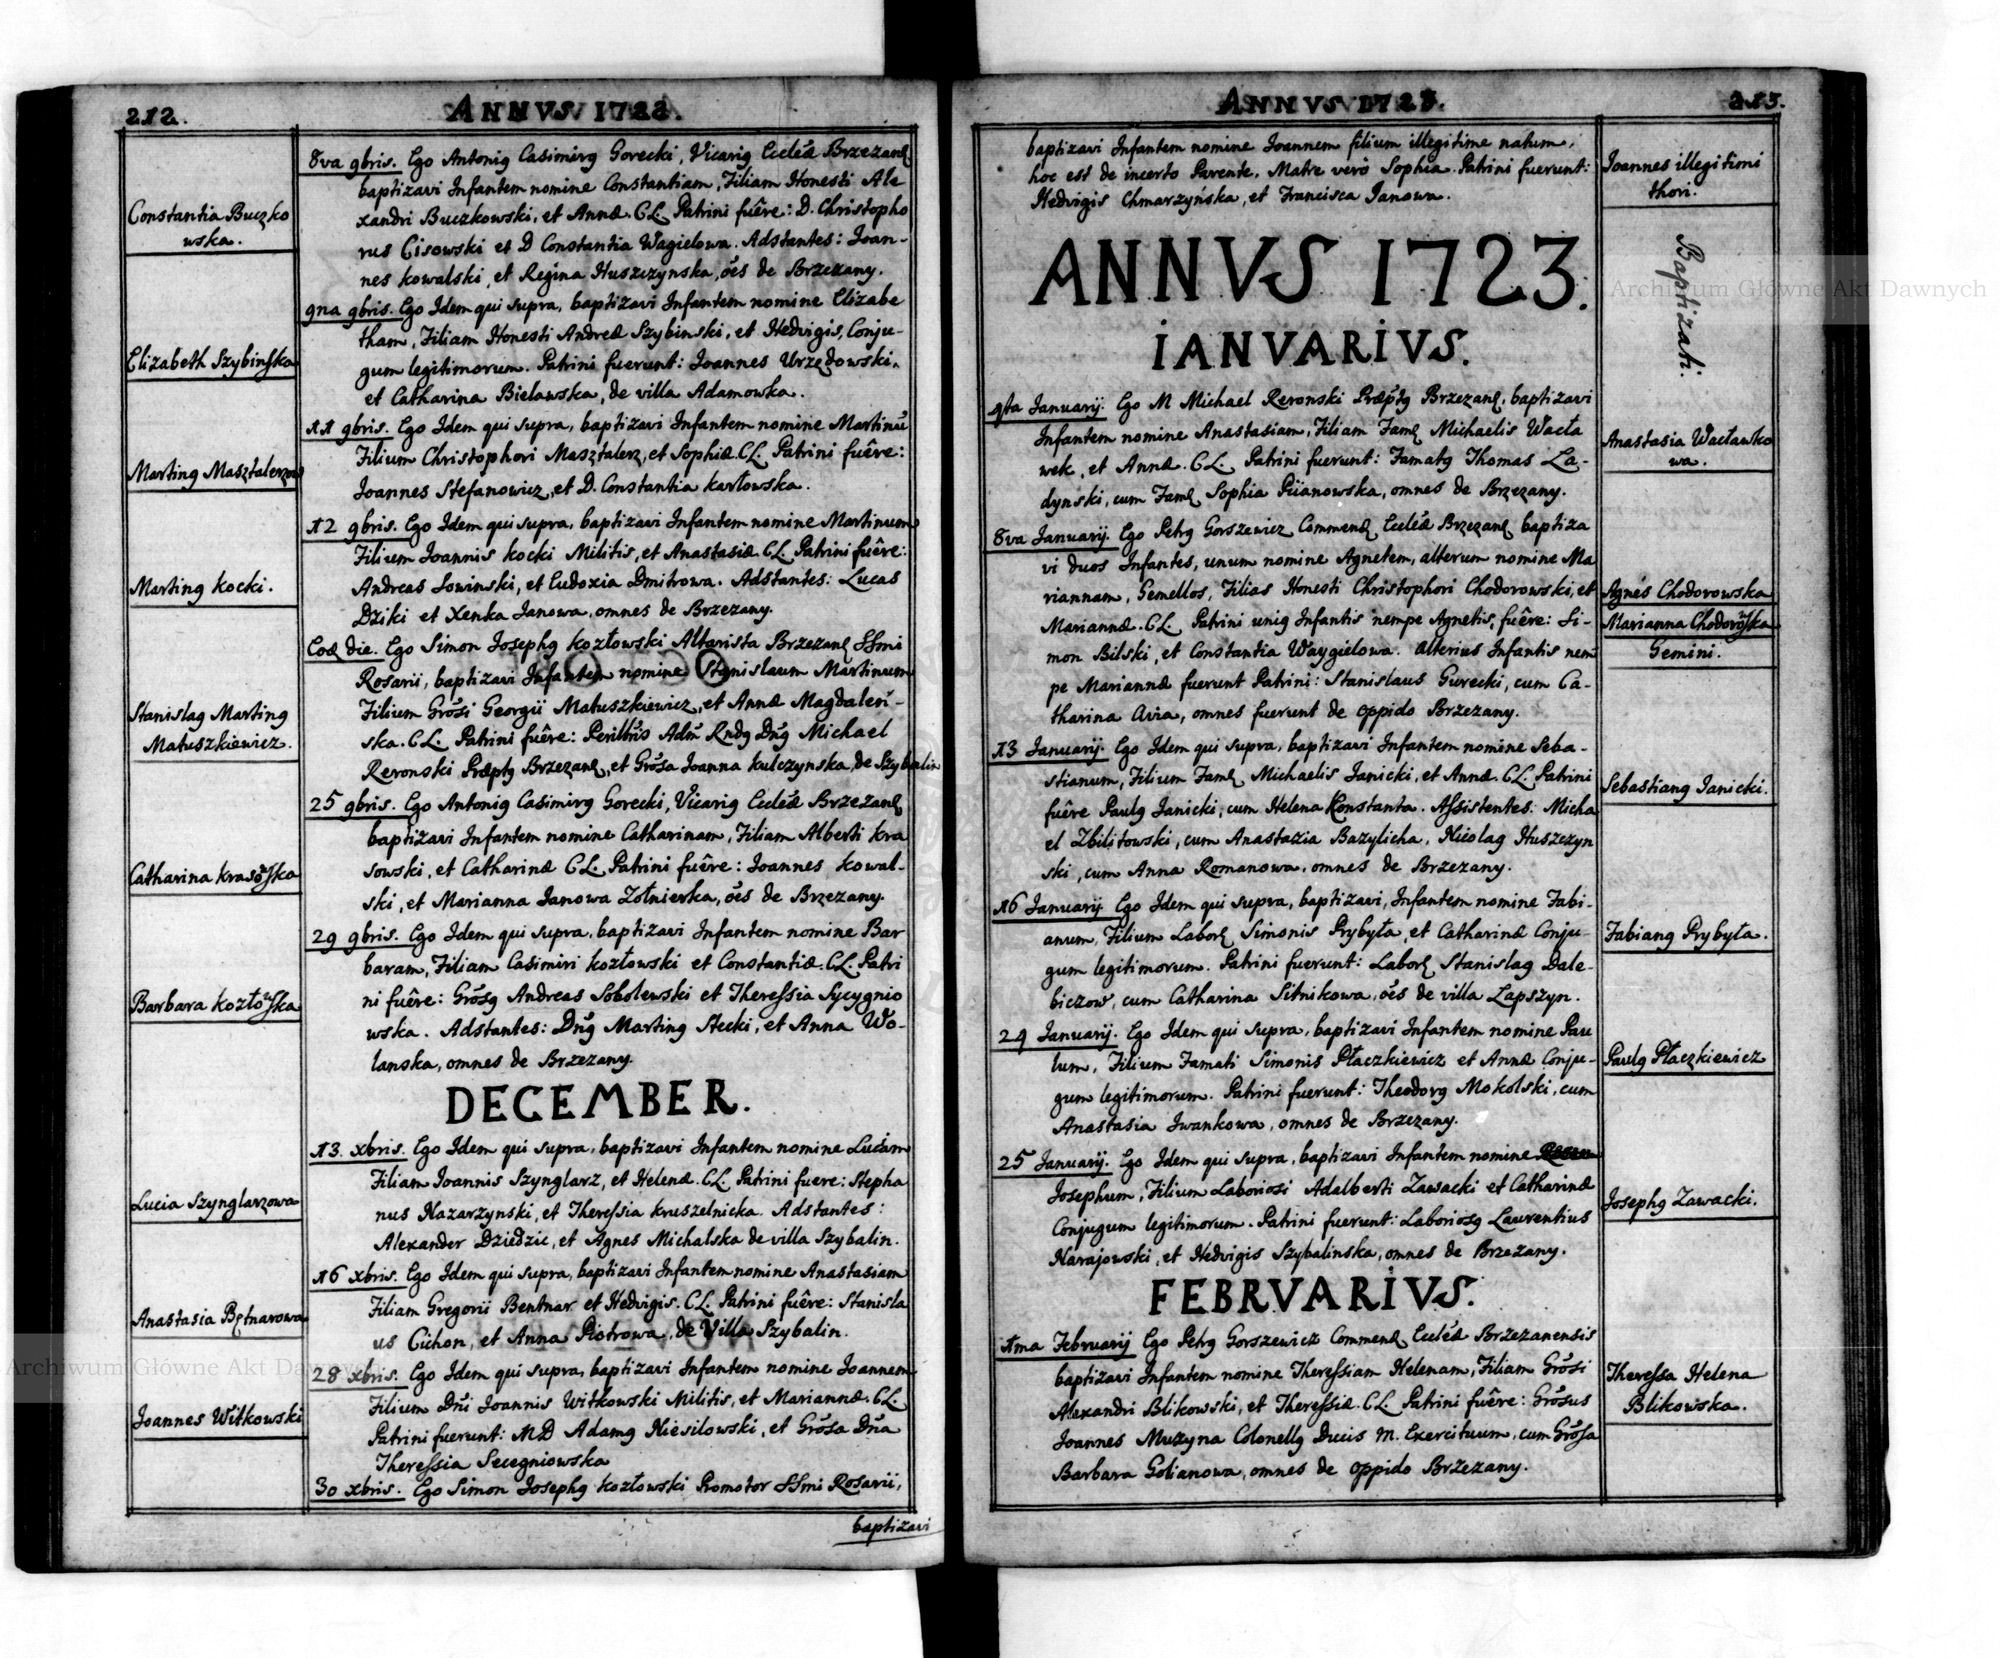 212.
ANNVS 1722.
Constantia Buczko
wska.
Elizabeth Szybinska
Marting Masztalerzow
Marting kocki.
Stanislag Marting
Matuszkiewicz.
Catharina krasowska
Barbara kozłowska
Lucia Szynglarzowa
Anastasia Bętnarowa
Joannes Witkowski
8va 9bris. Ego Antonig Casimirg Gorecki, Vicarig Eccleæ Brzezanę
baptizavi Infantem nomine Constantiam, Filiam Honesti Ale
xandri Buczkowski, et Annæ. CL. Patrini fuêre: D. Christopho
rus Cisowski et D Constantia Wagielowa. Adstantes: Joan-
nes kowalski, et Regina Huszczynska, oēs de Brzezany.
9na 9bris. Ego Idem qui supra, baptizavi Infantem nomine Elizabe
tham, Filiam Honesti Andreæ Szybinski, et Hedvigis, Conju-
gum legitimorum. Patrini fuerunt: Joannes Urzędowski,
et Catharina Bielawska, de villa Adamowka.
11 9bris. Ego Idem qui supra, baptizavi Infantem nomine Martinū
Filium Christophori Masztalerz, et Sophiæ. CL. Patrini fuêre:
Joannes Stefanowicz, et D. Constantia karłowska.
12 9bris. Ego Idem qui supra, baptizavi Infantem nomine Martinum
Filium Joannis kocki Militis, et Anastasiæ. CL. Patrini fuêre:
Andreas Sowinski, et Eudoxia Dmitrowa. Adstantes: Lucas
Dziki et Xenka Janowa, omnes de Brzezany.
Eoę die. Ego Simon Josephg kozłowski Altarista Brzezanę SSmi
Rosarii, baptizavi Infantem nomine Stanislaum Martinum
Filium Grōsi Georgii Matuszkiewicz, et Annæ Magdaleń-
ska. CL. Patrini fuêre: Perillris Adm̄ Rndg Dn̄g Michael
Reronski Præptg Brzezanę, et Grōsa Joanna kulczynska, de Szybalin
25 9bris. Ego Antonig Casimirg Gorecki, Vicarig Eccleæ Brzezanę
baptizavi Infantem nomine Catharinam, Filiam Alberti kra
sowski, et Catharinæ CL. Patrini fuêre: Joannes kowal-
ski, et Marianna Janowa Zołnierka, oēs de Brzezany.
29 9bris. Ego Idem qui supra, baptizavi Infantem nomine Bar
baram, Filiam Casimiri kozłowski et Constantiæ. CL. Patri
ni fuêre: Grōsg Andreas Sobolewski et Theressia Sycygnio
wska. Adstantes: Dn̄g Marting Stecki, et Anna Wo-
lanska, omnes de Brzezany.
DECEMBER.
13. xbris. Ego Idem qui supra, baptizavi Infantem nomine Luciam
Filiam Joannis Szynglarz, et Helenæ. CL. Patrini fuere: Stepha
nus Nazarzynski, et Theressia kruszelnicka. Adstantes:
Alexander Dziedzic, et Agnes Michalska de villa Szybalin.
16 xbris. Ego Idem qui supra, baptizavi Infantem nomine Anastasiam
Filiam Gregorii Bentnar et Hedvigis. CL. Patrini fuêre: Stanisla
us Cichon, et Anna Piotrowa, de Villa Szybalin.
28 xbris. Ego Idem qui supra, baptizavi Infantem nomine Joannem
Filium Dn̄i Joannis Witkowski Militis, et Mariannæ. CL.
Patrini fuerunt: MD Adamg Niesilowski, et Grōsa Dn̄a
Theressia Secegniowska
30 xbris. Ego Simon Josephg kozłowski Promotor SSmi Rosarii,
baptizavi
ANNVS 1723.
213.
baptizavi Infantem nomine Joannem filium illegitime natum,
hoc est de incerto Parente, Matre verò Sophia. Patrini fuerunt:
Hedvigis Chmarzyńska, et Francisca Janowa.
ANNVS 1723.
IANVARIVS.
9ta Januarij. Ego M Michael Reronski Præptg Brzezanę, baptizavi
Infantem nomine Anastasiam, Filiam Famę Michaelis Wacła
wek, et Annæ. CL. Patrini fuerunt: Famatg Thomas La-
dynski, cum Famę Sophia Piianowska, omnes de Brzezany.
8va Januarij. Ego Petrg Gorszewicz Commenę Eccleæ Brzezanę baptiza
vi duos Infantes, unum nomine Agnetem, alterum nomine Ma
riannam, Gemellos, Filias Honesti Christophori Chodorowski, et
Mariannæ. CL. Patrini unig Infantis nempe Agnetis, fuêre: Si-
mon Bilski, et Constantia Waygielowa. Alterius Infantis nem
pe Mariannæ fuerunt Patrini: Stanislaus Gurecki, cum Ca-
tharina Avia, omnes fuerunt de oppido Brzezany.
13 Januarij. Ego Idem qui supra, baptizavi Infantem nomine Seba-
stianum, Filium Famę Michaelis Janicki, et Annæ. CL. Patrini
fuêre Paulg Janicki, cum Helena Konstanta. Assistentes: Micha
el Zbilitowski, cum Anastazia Bazylicha, Nicolag Huszczyn
ski, cum Anna Romanowa, omnes de Brzezany.
16 Januarij. Ego Idem qui supra, baptizavi, Infantem nomine Fabi-
anum, Filium Laborę Simonis Prybyła, et Catharinæ Conju-
gum legitimorum. Patrini fuerunt: Laborę Stanislag Dale-
biczow, cum Catharina Sitnikowa, oēs de villa Lapszyn.
24 Januarij. Ego Idem qui supra, baptizavi Infantem nomine Pau
lum, Filium Famati Simonis Płaczkiewicz et Annæ Conju-
gum legitimorum. Patrini fuerunt: Theodorg Mokolski, cum
Anastasia Iwankowa, omnes de Brzezany.
25 Januarij. Ego Idem qui supra, baptizavi Infantem nomine
Josephum, Filium Laboriosi Adalberti Zawacki et Catharinæ
Conjugum legitimorum. Patrini fuerunt: Laboriosg Laurentius
Narajowski, et Hedvigis Szybalinska, omnes de Brzezany.
FEBRVARIVS.
1ma Februarij Ego Petrg Gorszewicz Commenę Eccleæ Brzezanensis
baptizavi Infantem nomine Theressiam Helenam, Filiam Grōsi
Alexandri Blikowski, et Theressiæ. CL. Patrini fuêre: Grōsus
Joannes Muzyna Colonellg Ducis M. Exercituum, cum Grōsa
Barbara Golianowa, omnes de oppido Brzezany.
Joannes illegitimi
thori.
Baptizati.
Anastasia Wacławko
wa.
Agnés Chodorowska
Marianna Chodorowska
Gemini.
Sebastiang Janicki.
Fabiang Prybyła.
Paulg Płaczkiewicz
Josephg Zawacki.
Theressa Helena
Blikowska.
Archiwum Główne Akt Dawnych
Archiwum Główne Akt Dawnych